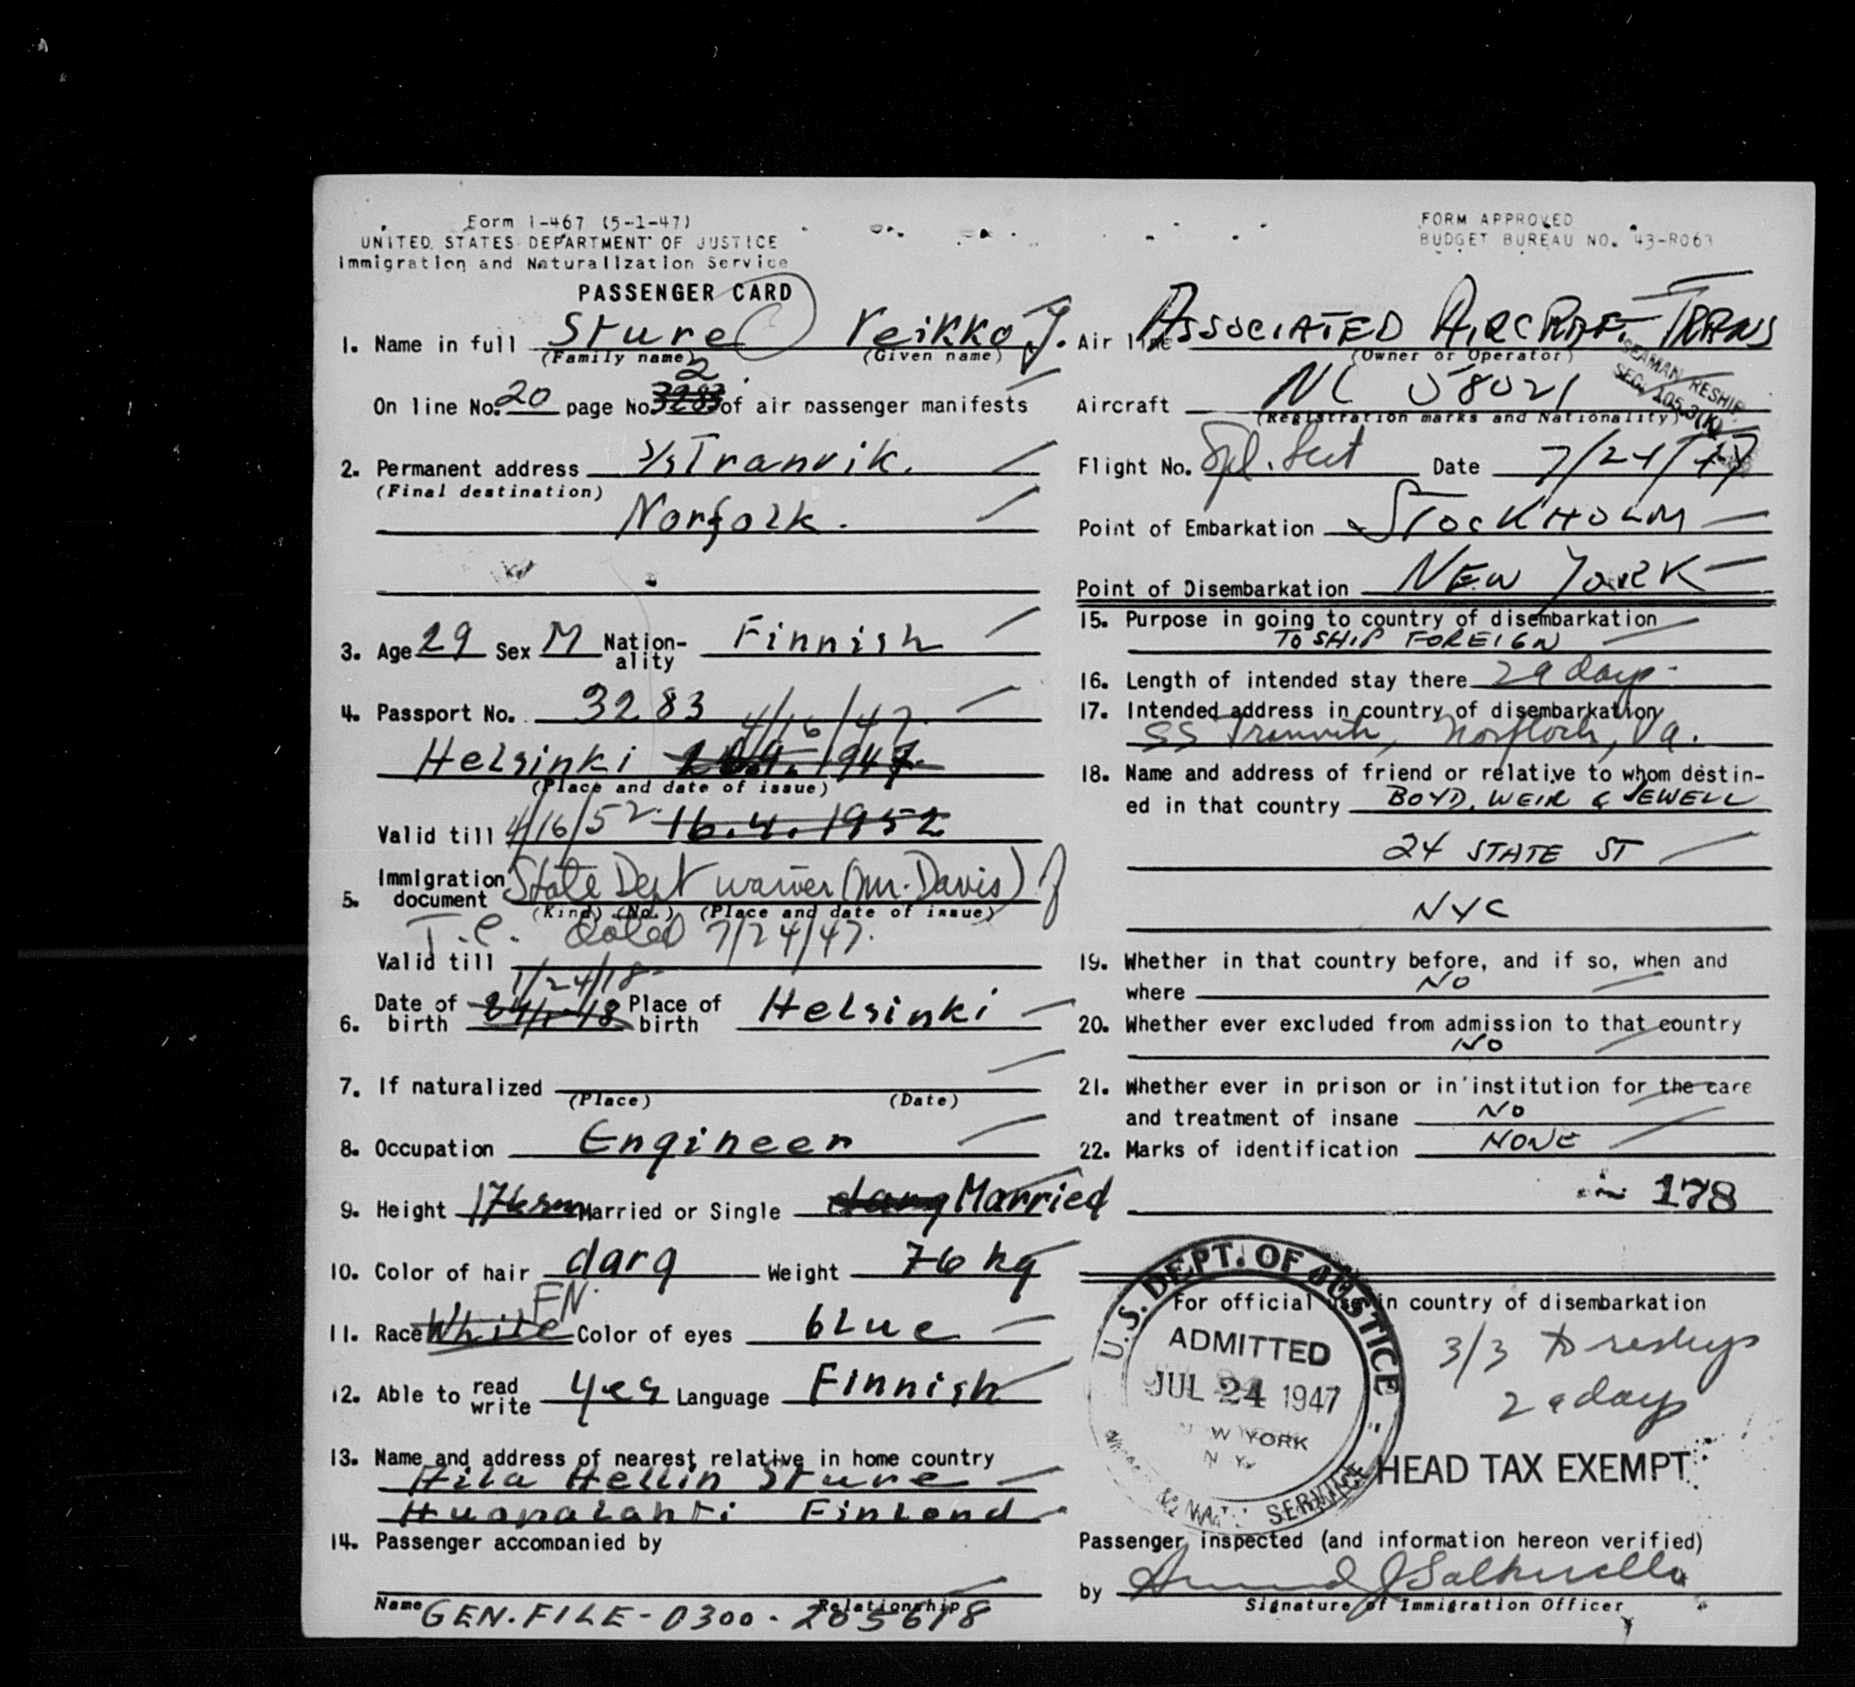 Form I-467 (5-1-47)
UNITED STATES DEPARTMENT OF JUSTICE
Immigration and Naturalization Service
PASSENGER CARD
1. Name in full Sture Veikko J.
(Family name) (Given name)
On line No. 20 page No. 3283 2 of air passenger manifests
2. Permanent address S/S Tranvik.
(Final destination)
Norfolk.
3. Age 29 Sex M Nation-ality Finnish
4. Passport No. 3283
4/16/47.
Helsinki 1947
(Place and date of issue)
Valid till 4/16/52 16.4.1952
5. Immigration document State Dept waiver (Mr. Davis) of
(Kind) (No.) (Place and date of issue)
T.C. dated 7/24/47.
Valid till
1/24/18
6. Date of birth 24/1-18 Place of birth Helsinki
7. If naturalized
(Place) (Date)
8. Occupation Engineer
9. Height 176 sm Married or Single darq Married
10. Color of hair darq Weight 76 kg
FN.
11. Race White Color of eyes blue
12. Able to read write yes Language Finnish
13. Name and address of nearest relative in home country
Hila Hellin Sture
Huopalahti Finlond
14. Passenger accompanied by
Name Relationship
GEN. FILE - 0300 - 205618
FORM APPROVED
BUDGET BUREAU NO. 43-R063
Air line ASSOCIATED AIRCRAFT TRANS
(Owner or Operator)
SEAMAN RESHIP
SEC. 105.3(K)
Aircraft NC 58021
(Registration marks and Nationality)
Flight No. Spl. Date 7/24/47
Point of Embarkation STOCKHOLM
Point of Disembarkation NEW YORK
15. Purpose in going to country of disembarkation
TO SHIP FOREIGN
16. Length of intended stay there 29 days
17. Intended address in country of disembarkation
SS Tranvik, Norfolk, Va.
18. Name and address of friend or relative to whom destin-
ed in that country BOYD, WEIR & SEWELL
24 STATE ST
NYC
19. Whether in that country before, and if so, when and
where NO
20. Whether ever excluded from admission to that country
NO
21. Whether ever in prison or in institution for the care
and treatment of insane NO
22. Marks of identification NONE
178
For official use in country of disembarkation
U.S. DEPT. OF JUSTICE
ADMITTED
JUL 24 1947
NEW YORK
N.Y.
SERVICE
3/3 to reship
29 days
HEAD TAX EXEMPT
Passenger inspected (and information hereon verified)
by
Signature of Immigration Officer